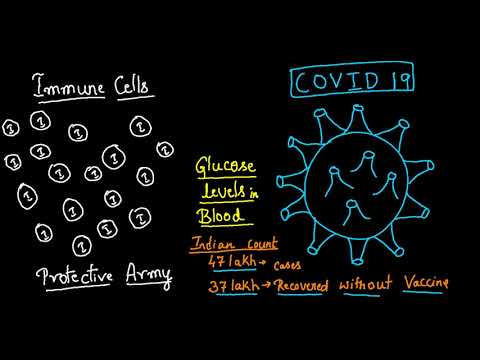 Immune Cells
I I I I I I I I I I I I I I I I I
Protective Army
COVID 19
Glucose
levels in
Blood
Indian count
47 lakh → cases
37 lakh → Recovered without Vaccine